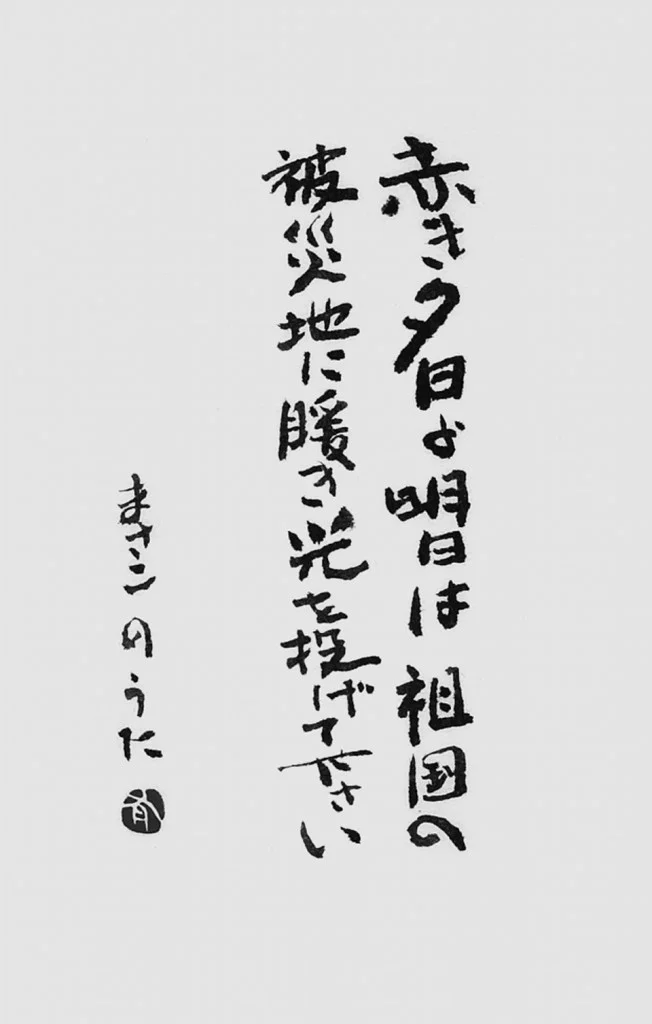 赤き夕日よ明日は祖国の
被災地に暖き光を投げて下さい
まさこのうた